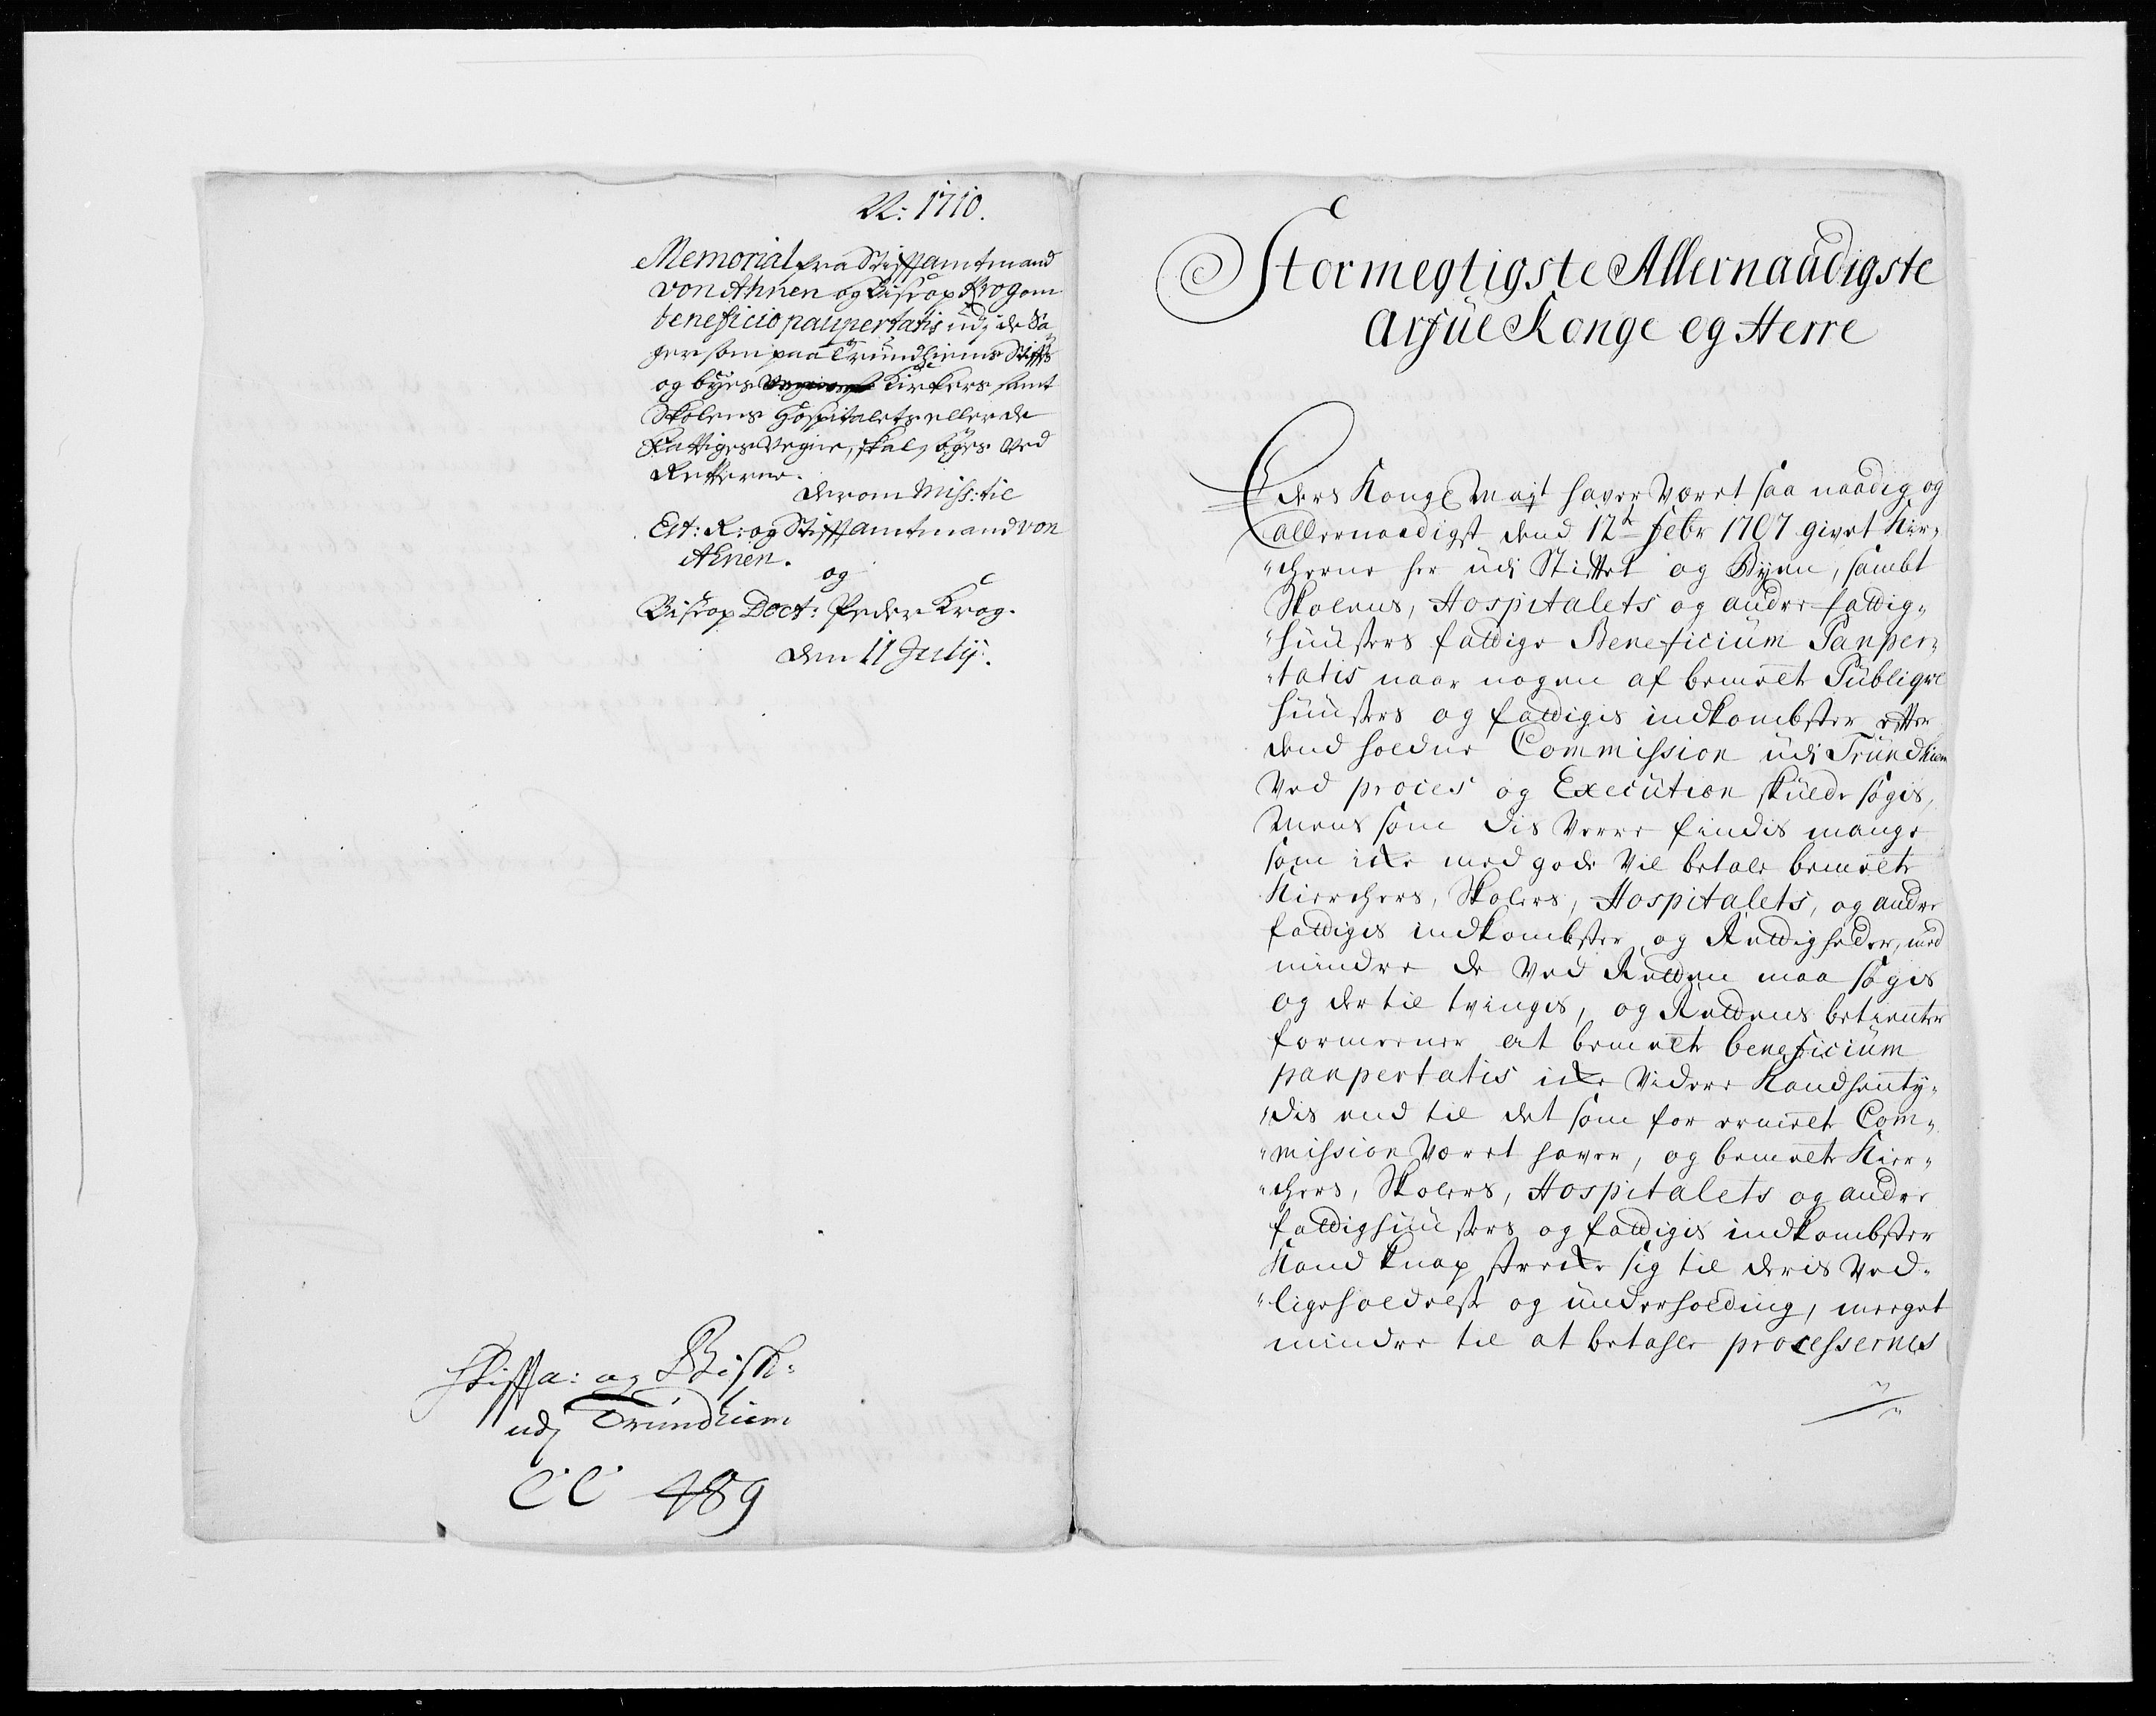 22: 1710.
Memorial fra Stiftamtmand
von Ahnen og Bisrop Krog om
beneficio paupertatis udj de Sa
ger som paa Trundhiems Stifts
og byes Kirkers samt
Skolens Hospitalets eller de
Fattiges Vegne, skal søges Ved
Retterne.
derom Miss: til
Et: R: og Stiftamtmand von
Ahnen.
og
Bisrop Doct: Peder Krog.
den 11 July.
Stiffta: og Bisk:
udj Trundhiem
CC 489
Stormegtigste Allernaadigste
Arfue Konge og Herre
Eders Kongl Mayt hafver Været saa naadig og
allernaadigst dend 12te Febr 1707 givet Kir¬
cherne her udi Stiftet og Byen, sambt
Skolens, Hospitalets og andre fattig¬
huusers fattige Beneficium Pauper¬
tatis naar nogen af bemelte Publiqve
huusers og fattigis indkombster efter
dend holdne Commission udi Trundhiem
Ved proces og Execution skulde søgis,
Mens som dis Verre findis mange
som icke med gode Vil betale bemelte
Kierchers, Skolers, Hospitalets, og andre
fattigis indkombster og Rettigheder, med
mindre de Ved Retten maa søgis
og der til tvingis, og Rettens betienter
formeener at bemelte beneficium
paupertatis icke Videre Kand henty¬
dis end til det som for ermelte Com¬
mission Været hafver, og bemelte Kier¬
chers, Skolers, Hospitalets og andre
fattighuusers og fattigis indkombster
Kand knap strecke sig til deris Ved¬
ligeholdelse og underholding, meeget
mindre til at betahle processernes